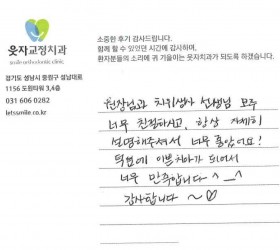 소중한 후기 감사드립니다.
함께 할 수 있었던 시간에 감사하며,
환자분들의 소리에 귀 기울이는 웃자치과가 되도록 하겠습니다.
웃자교정치과
smile orthodontic clinic
경기도 성남시 중원구 성남대로
1156 도원타워 3,4층
031 606 0282
letssmile.co.kr
원장님과 치위생사 선생님 모두
너무 친절하시고, 항상 자세히
설명해주셔서 너무 좋았어요!
덕분에 이쁜치아가 되어서
너무 만족합니다 ^_^
감사합니다 ~♡